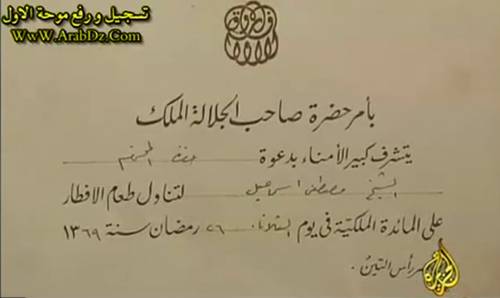 تسجيل ورفع موحة الاول
WwW.ArabDz.Com
بأمر حضرة صاحب الجلالة الملك
يتشرف كبير الأمناء بدعوة حضرة المحترم
الشيخ مصطفى اسماعيل لتناول طعام الافطار
على المائدة الملكية فى يوم الثلاثاء ٢٦ رمضان سنة ١٣٦٩
رأس التين.
الجزيرة